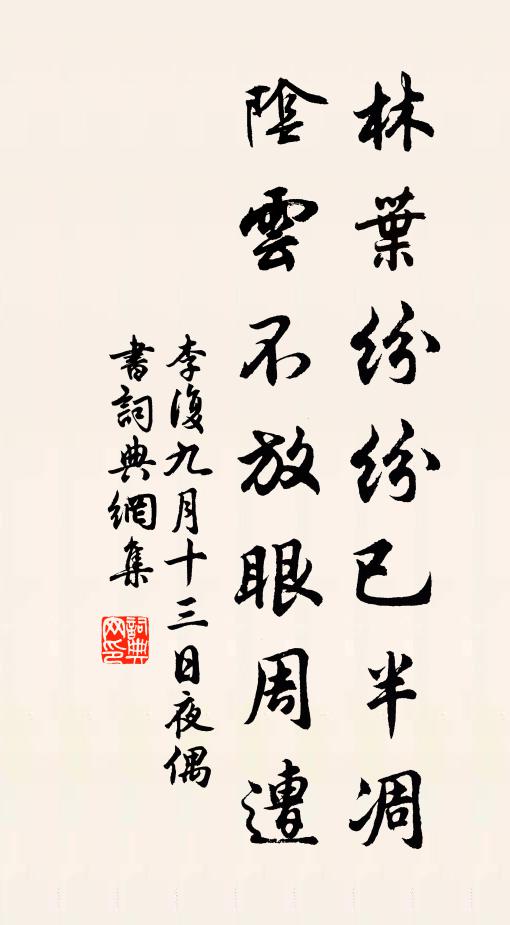 林葉紛紛已半凋
陰雲不放眼周遭
李復九月十三日夜偶
書詞典網集
詞典網印